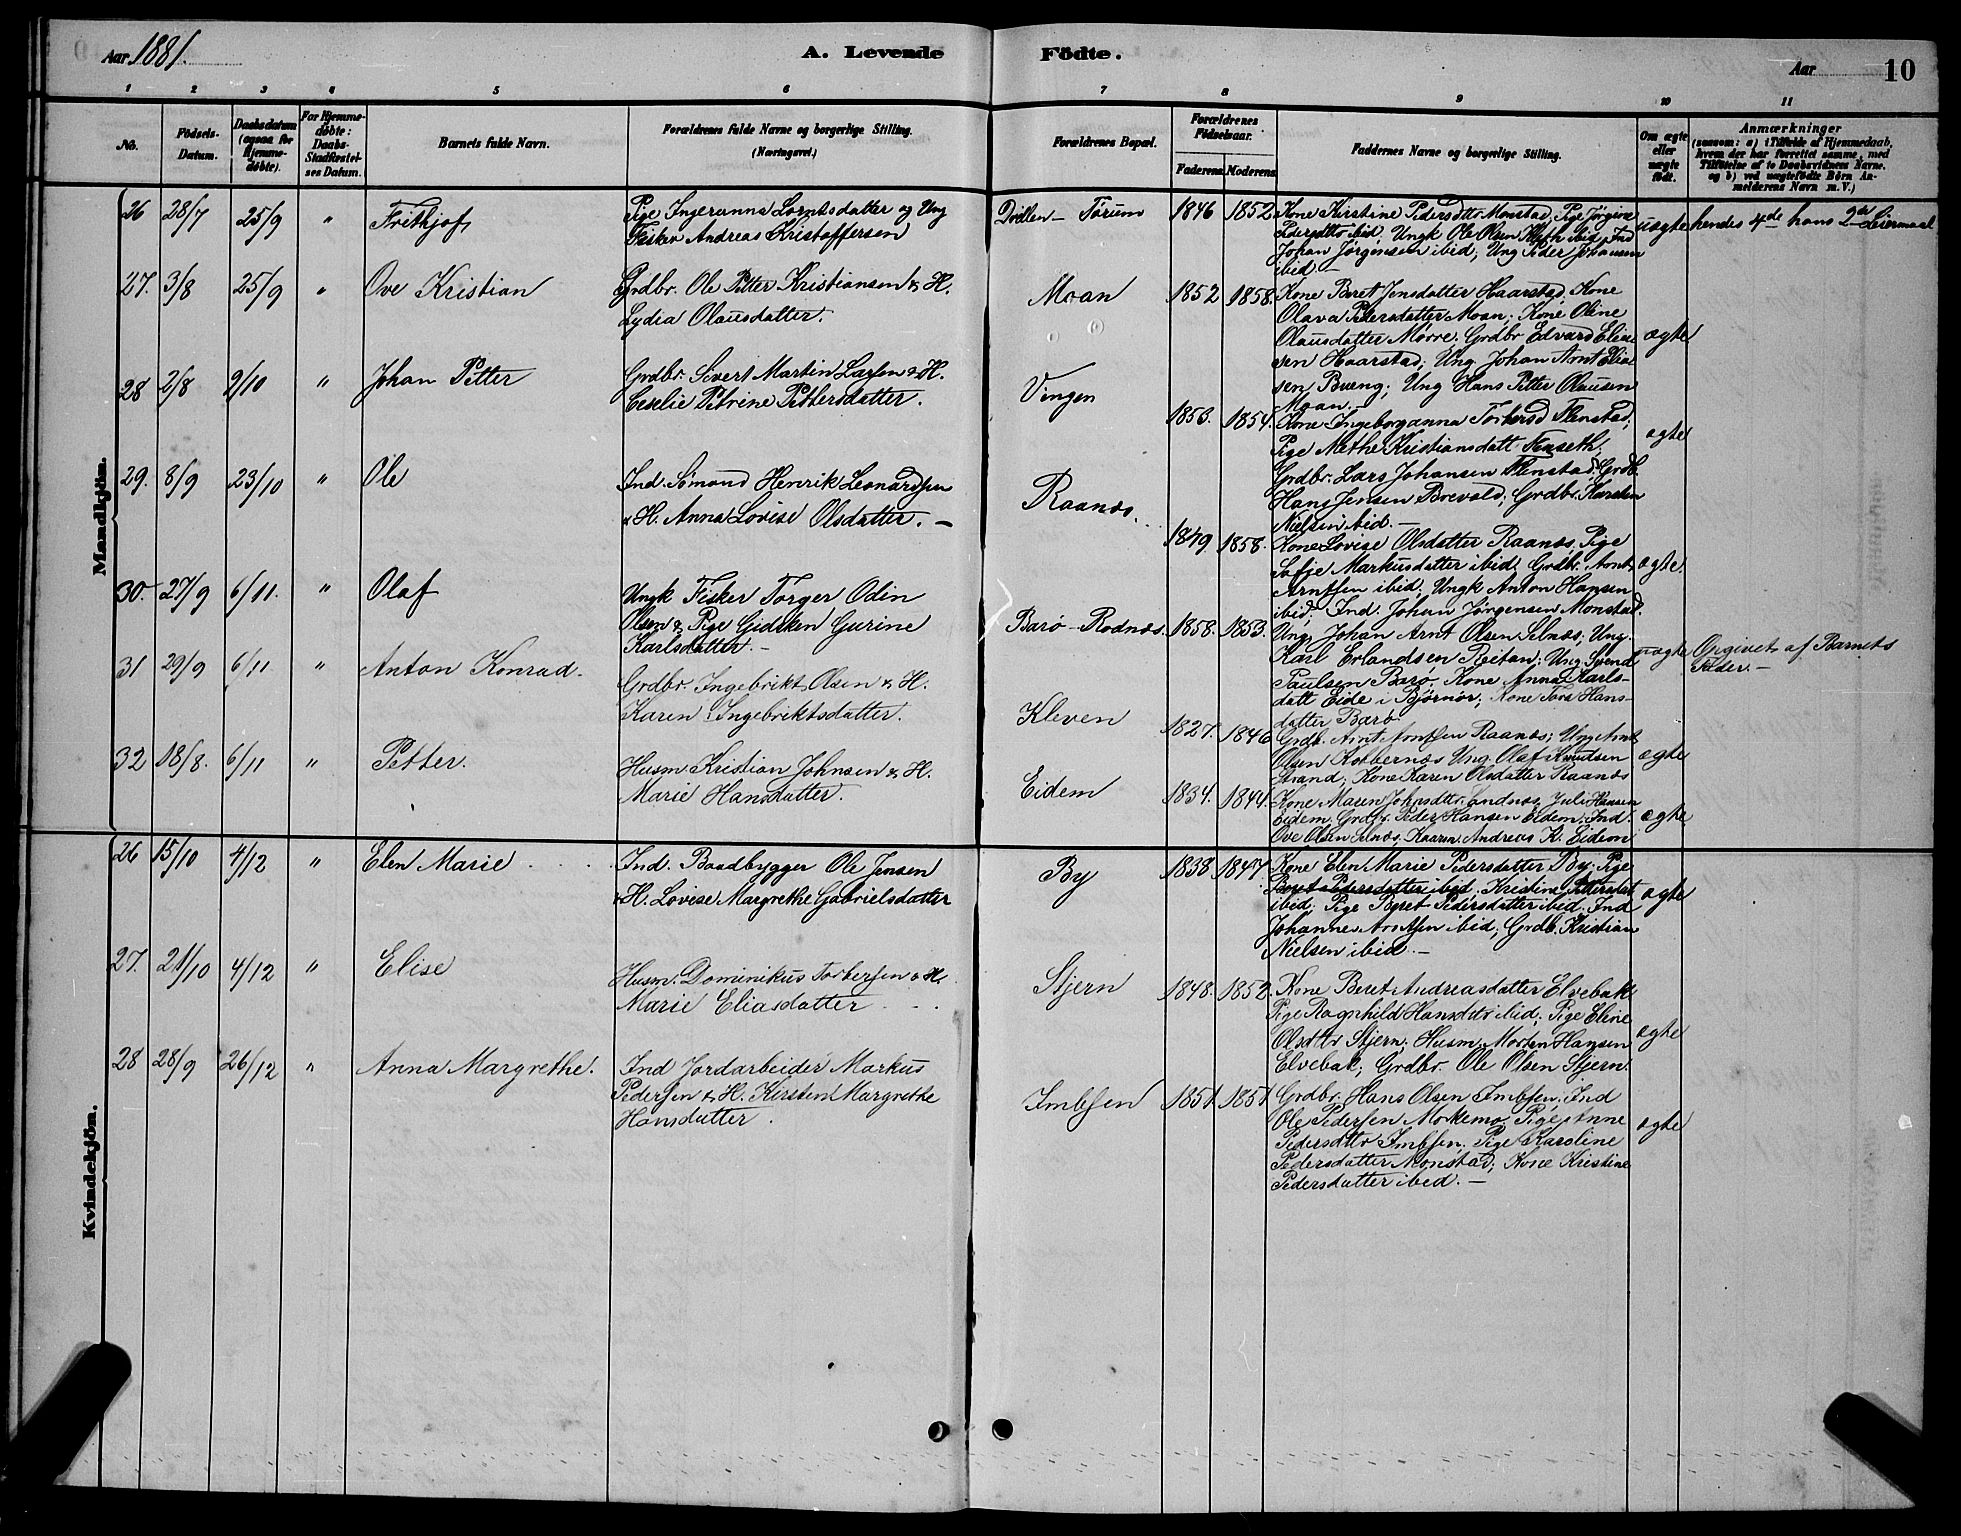 Aar 1881.
A. Levende Födte.
Aar 10
1 2 3 4 5 6 7 8 9 10 11
No.
Födsels-Datum.
Daabsdatum (ogsaa for Hjemme-döbte).
For Hjemme-döbte: Daabs-Stadfæstel-ses Datum.
Barnets fulde Navn.
Forældrenes fulde Navne og borgerlige Stilling.
(Næringsvei.)
Forældrenes Bopæl.
Forældrenes Födselsaar.
Faderens Moderens
Faddernes Navne og borgerlige Stilling.
Om ægte eller uægte födt.
Anmærkninger
(saasom: a) i Tilfælde af Hjemmedaab,
hvem der har forrettet samme, med
Tilföielse af to Daabsvidners Navne.
og b) ved uægtefödte Börn An-
melderens Navn m. V.)
Mandkjön.
26 28/7 25/9 " Frithjof
Pige Ingeranna Lorntsdatter og Ung
Fisker Andreas Kristoffersen
Tørum 1846 1852
Kone Kirstine Pedersdtr Monstad, Pige Jørgine
Pedersdtr ibid, Ungk Ole Olsen ibid, Ind
Johan Jørgensen ibid; Ung Peder Johansen
ibid.—
uægte hendes 4de hans 2det Leiermaal
27. 3/8 25/9 " Ove Kristian
Grdbr. Ole Petter Kristiansen & H.
Lydia Olausdatter.
Moan 1852 1858.
Kone Beret Jensdatter Haarstad, Kone
Olava Pedersdatter Moan; Kone Oline
Olausdatter Mørre; Grdbr Edvard Elia-
sen Haarstad; Ung Johan Arnt Elia-
sen Bueng; Ung Hans Petter Olausen
Moan.—
ægte
28 2/8 9/10 " Johan Petter
Grdbr. Sivert Martin Larsen & H.
Ceselie Petrine Pettersdatter.
Vingen 1853. 1854.
Kone Ingeborganna Torbersd Flenstad;
Pige Methe Kristiansdatt
Grdbr. Lars Johansen Flenstad; Grdb.
Hans Jensen Brevold; Grdbr. Karsten
Nielsen ibid.—
ægte
29. 8/9 23/10 " Ole
Ind. Sömand Henrik Leonardsen
& H. Anna Lovise Olsdatter.—
Raanæs. 1849 1858.
Kone Lovise Olsdatter Raanæs, Pige
Sofie Markusdatter ibid, Grdbr. Arnt
Arntsen ibid; Ungk Anton Hansen
ibid; Ind. Johan Jørgensen Monstad.
ægte.
30. 27/9 6/11. " Olaf
Ungk Fisker Torger Odin
Olsen & Pige Gidsken Gurine
Karlsdatter.—
Barø - Rodnæs. 1858. 1853.
Ung. Johan Arnt Olsen Selnæs, Ung.
Karl Erlandsen Reitan; Ung Svend
Paulsen Barø. Kone Anna Karls-
datt Eide i Bjørnør; Kone Tora Hans-
datter Barø
uægte Opgivet af Barnets
Fader.—
31 29/9 6/11 " Anton Konrad.
Grdbr. Ingebrikt Olsen & H.
Karen Ingebriktsdatter.
Kleven 1827. 1846
Grdb. Arnt Arntsen Raanæs; Ung Arnt
Olsen Ung. Olaf Knudsen
Strand; Kone Karen Olsdatter Raanæs
ægte
32 18/8. 6/11 " Petter.
Husm. Kristian Johnsen & H.
Marie Hansdatter.
Eidem 1834. 1844.
Kone Maren Johnsdtr. Sandnæs, Juli Hansen
Eidem, Grdbr. Peder Hansen Eidem; Ind.
Ove Olsen Selnæs, Kaaren Andreas K. Eidem
ægte
Kvindekjön.
26 15/10 4/12 " Elen Marie
Ind. Baadbygger Ole Jensen
& H. Lovise Margrethe Gabrielsdatter
By 1838 1847
Kone Elen Marie Pedersdatter By; Pige
Beret Pedersdatter ibid, Kristine Pettersdat
ibid; Pige Beret Pedersdatter ibid. Ind
Johannes Arntsen ibid; Grdb. Kristian
Nielsen ibid.—
ægte
27. 21/10 4/12 " Elise
Husm. Dominikus Torbersen & H.
Marie Eliasdatter
Stjern 1848. 1852.
Kone Beret Andreasdatter Elvebak
Pige Ragnhild Hansdtr ibid; Pige Eline
Olsdtr Stjern; Husm. Morten Hansen
Elvebak; Grdbr. Ole Olsen Stjern.
ægte
28 28/9 26/12 " Anna Margrethe.
Ind Jordarbeider Markus
Pedersen & H. Kirsten Margrethe
Hansdatter.
Imbsen 1851 1851
Grdbr. Hans Olsen Imbsen; Ind
Ole Pedersen Morkemo, Pige Anne
Pedersdtr Imbsen. Pige Karoline
Pedersdatter Monstad; Kone Kristine
Pedersdatter ibid.—
ægte